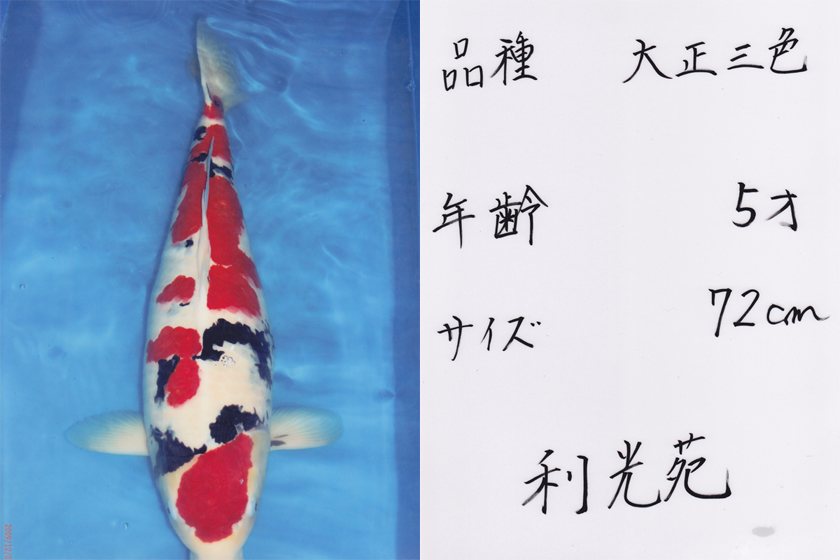 品種 大正三色
年齢 5才
サイズ 72cm
利光苑